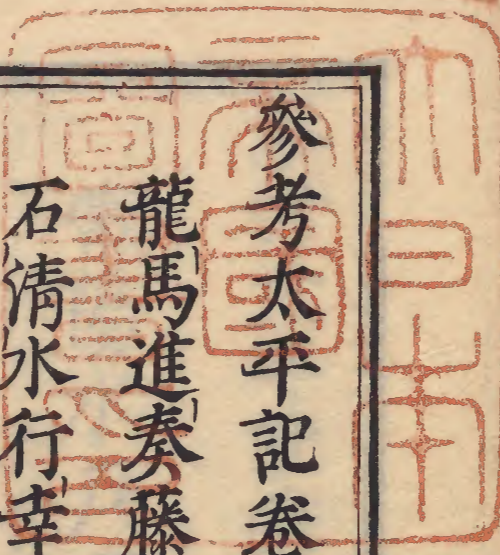 參考太平記卷
龍馬進奏藤
石清水行幸
大日本